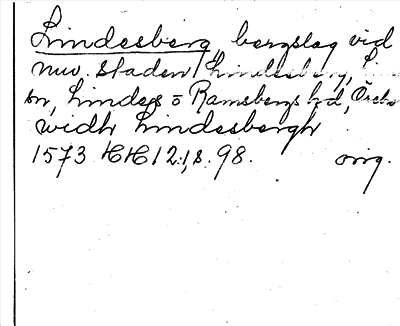 Lindesberg, bergslag vid
nuv. staden Lindesberg, Li
sn, Lindes o Ramsbergs hd, Örebro
widh Lindesbergh
1573 HH 12:1, s. 98. orig.